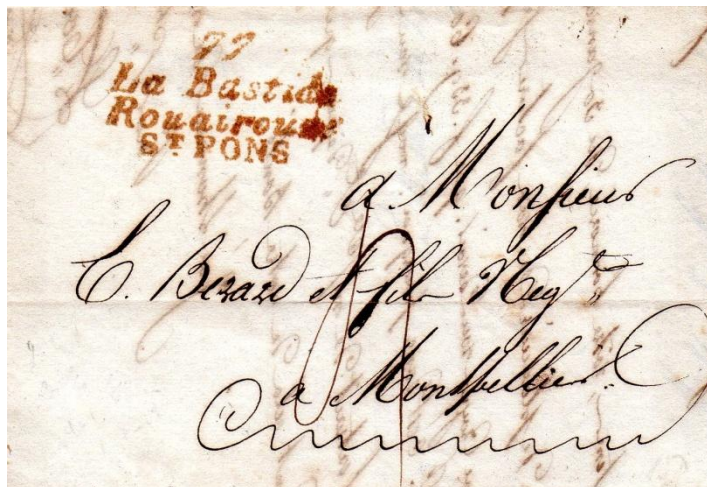 77
La Bastide
Rouairoux
ST PONS
a Monsieur
E. Berard et fils Negt
a Montpellier